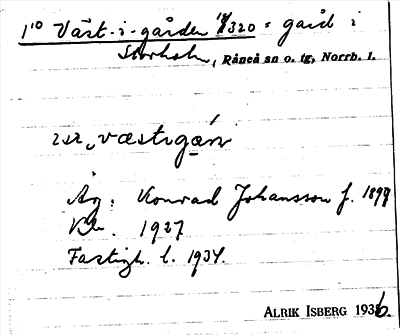 1¹⁰ Väst-i-gården 18/320 = gård i
Storholm, Råneå sn o. tg, Norrb. l.
væstıgán
Äg: Konrad Johansson f. 1899
1927
Fastigh. l. 1934.
ALRIK ISBERG 1936.